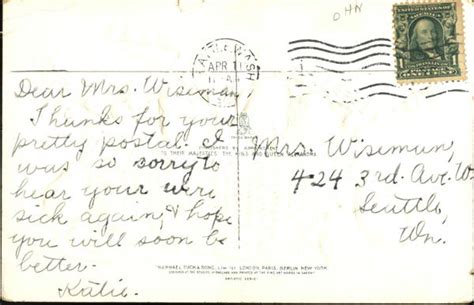 OHN
WASH
APR 11
UNITED STATES OF AMERICA
1 ONE CENT 1
Dear Mrs. Wiseman,
Thanks for your
pretty postal. I
was so sorry to
hear your were
sick again, & hope
you will soon be
better.
Katie.
TO THEIR MAJESTIES THE KING AND QUEEN ALEXANDRA
Mrs. Wiseman,
424 3rd. Ave. W.
Seattle,
Wn.
RAPHAEL TUCK & SONS, LONDON, PARIS, BERLIN, NEW YORK